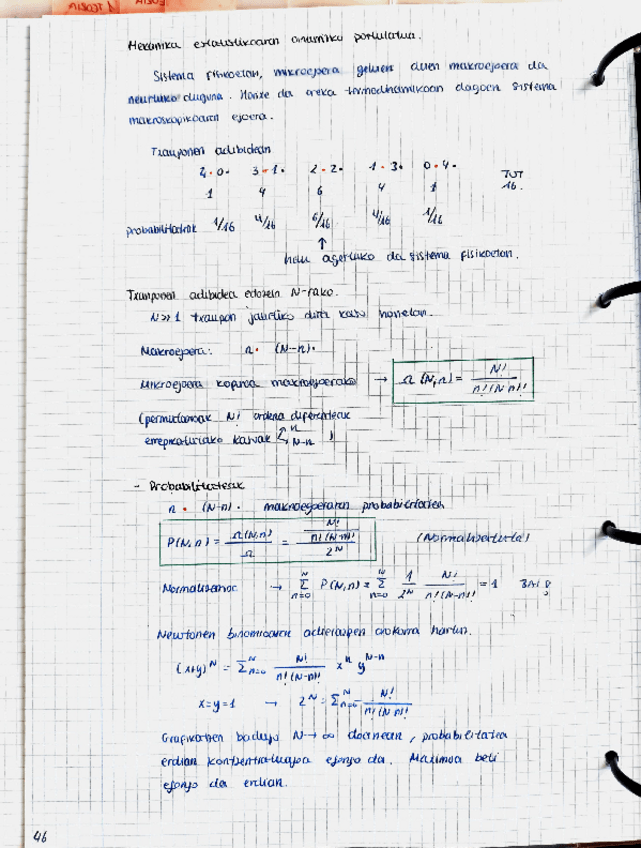 Mekanika estatistikoaren oinarrizko postulatua.
Sistema fisikoetan, mikroegoera gehien duen makroegoera da
neurtuko duguna. Hauxe da oreka termodinamikoan dagoen sistema
makroskopikoaren egoera.
Txanponen adibidean
4 • 0 • 3 • 1 • 2 • 2 • 1 • 3 • 0 • 4 • TOT
1 4 6 4 1 16.
probabilitateak 1/16 4/16 6/16 4/16 1/16
↑
hau agertuko da sistema fisikoetan.
Txanponen adibidea edozein N-rako.
N>>1 txanpon jaurtiko dira kasu honetan.
Makroegoera: n • (N-n) •
Mikroegoera kopurua makroegoerako → Ω(N,n) = N! / n!(N-n)!
(permutazioak N! ordena diferenteak
errepikatutako kasuak n, N-n )
- Probabilitateak
n • (N-n) • makroegoeraren probabilitatea
P(N,n) = Ω(N,n) / Ω = N! / n!(N-n)! / 2^N (Normalizatuta)
Normalizazioa → Σ_{n=0}^{N} P(N,n) = Σ_{n=0}^{N} 1/2^N N! / n!(N-n)! = 1 BAI
Newtonen binomioaren adierazpen orokorra hartuz.
(x+y)^N = Σ_{n=0}^{N} N! / n!(N-n)! x^n y^{N-n}
x=y=1 → 2^N = Σ_{n=0}^{N} N! / n!(N-n)!
Grafikatzen badugu N→∞ doanean, probabilitatea
erdian kontzentratuagoa egongo da. Maximoa beti
egongo da erdian.
46